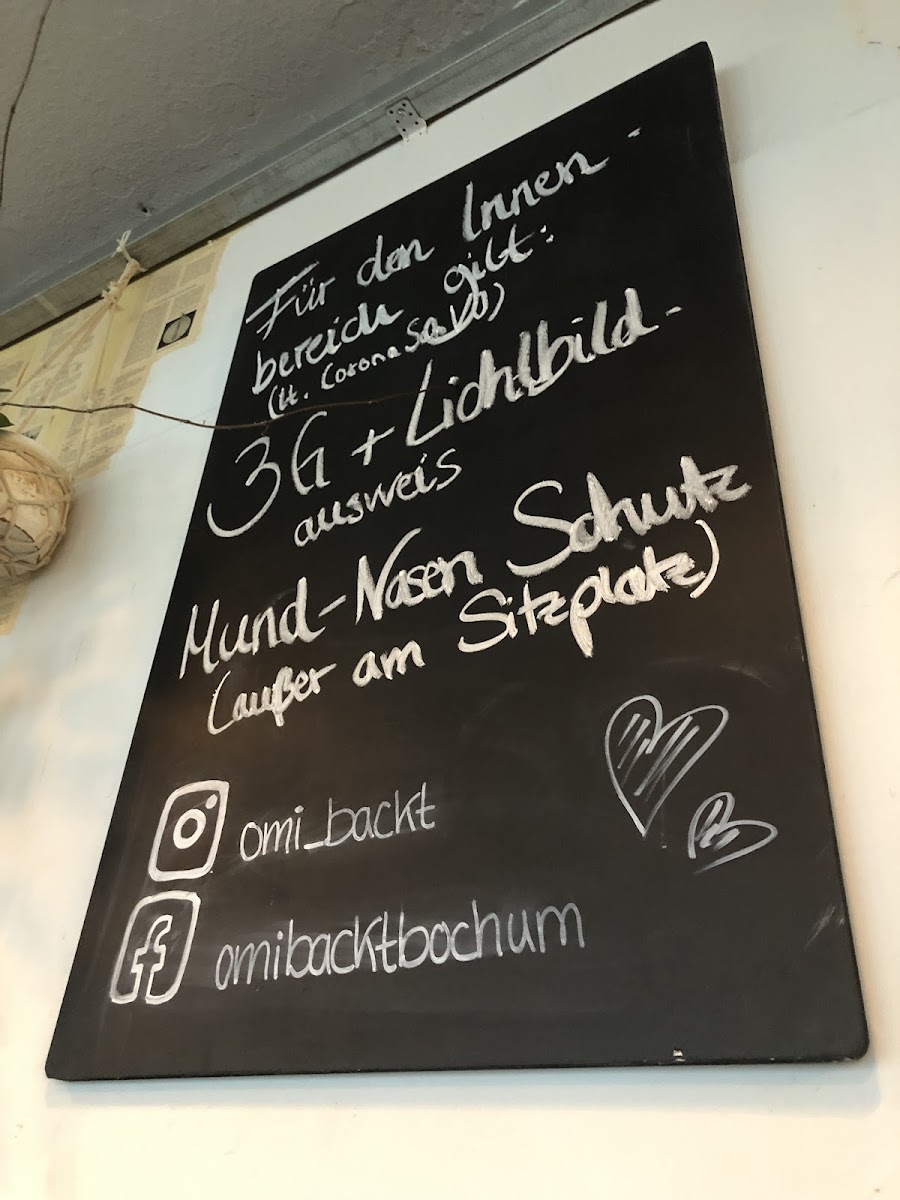 Für den Innen-
bereich gilt:
(lt. Corona SchVO)
3G + Lichtbild-
ausweis
Mund-Nasen Schutz
(außer am Sitzplatz)
omi_backt
omibacktbochum